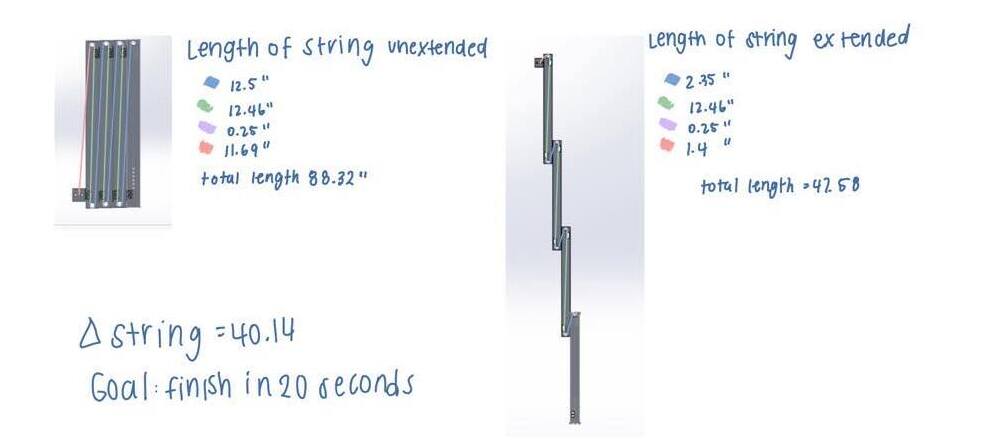 Length of string unextended
12.5"
12.46"
0.25"
11.69"
total length 88.32"
Length of string extended
2.35"
12.46"
0.25"
1.4"
total length = 47.58
Δ string = 40.14
Goal: finish in 20 seconds